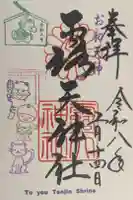 奉拝
お初天神
露天神社
令和八年
月十四日
To you Tenjin Shrine